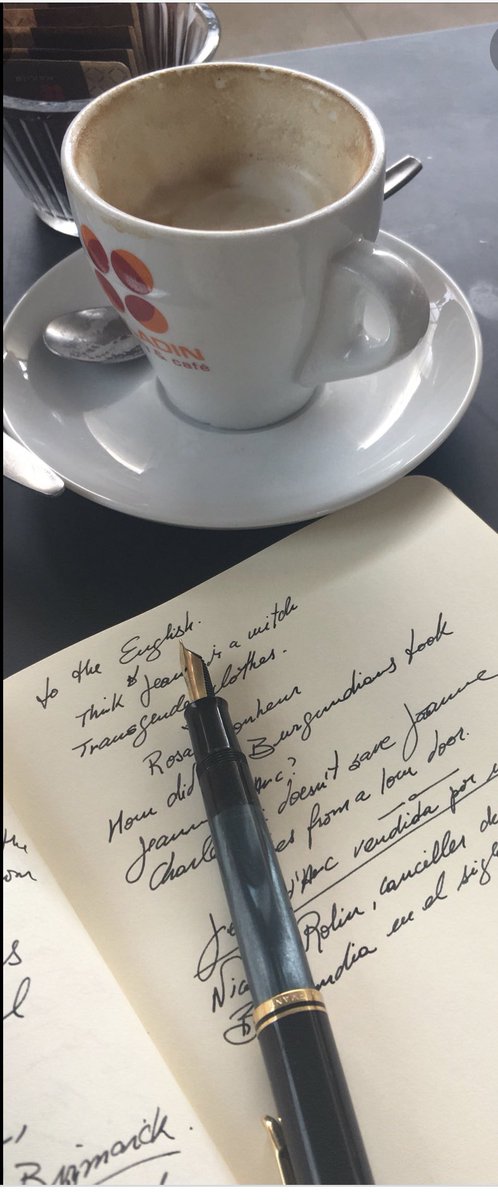 ADIN
& café
to the English.
Think Jean is a witch
Transgende clothes.
Rosa onheur
How did Burgundians took
Jeann Arc?
Charle es doesn't save Joanne
from a low door.
d'Arc vendida por
Nic Rolin, canciller de
B ndia en el sigl
the
s
l
Bismarck.